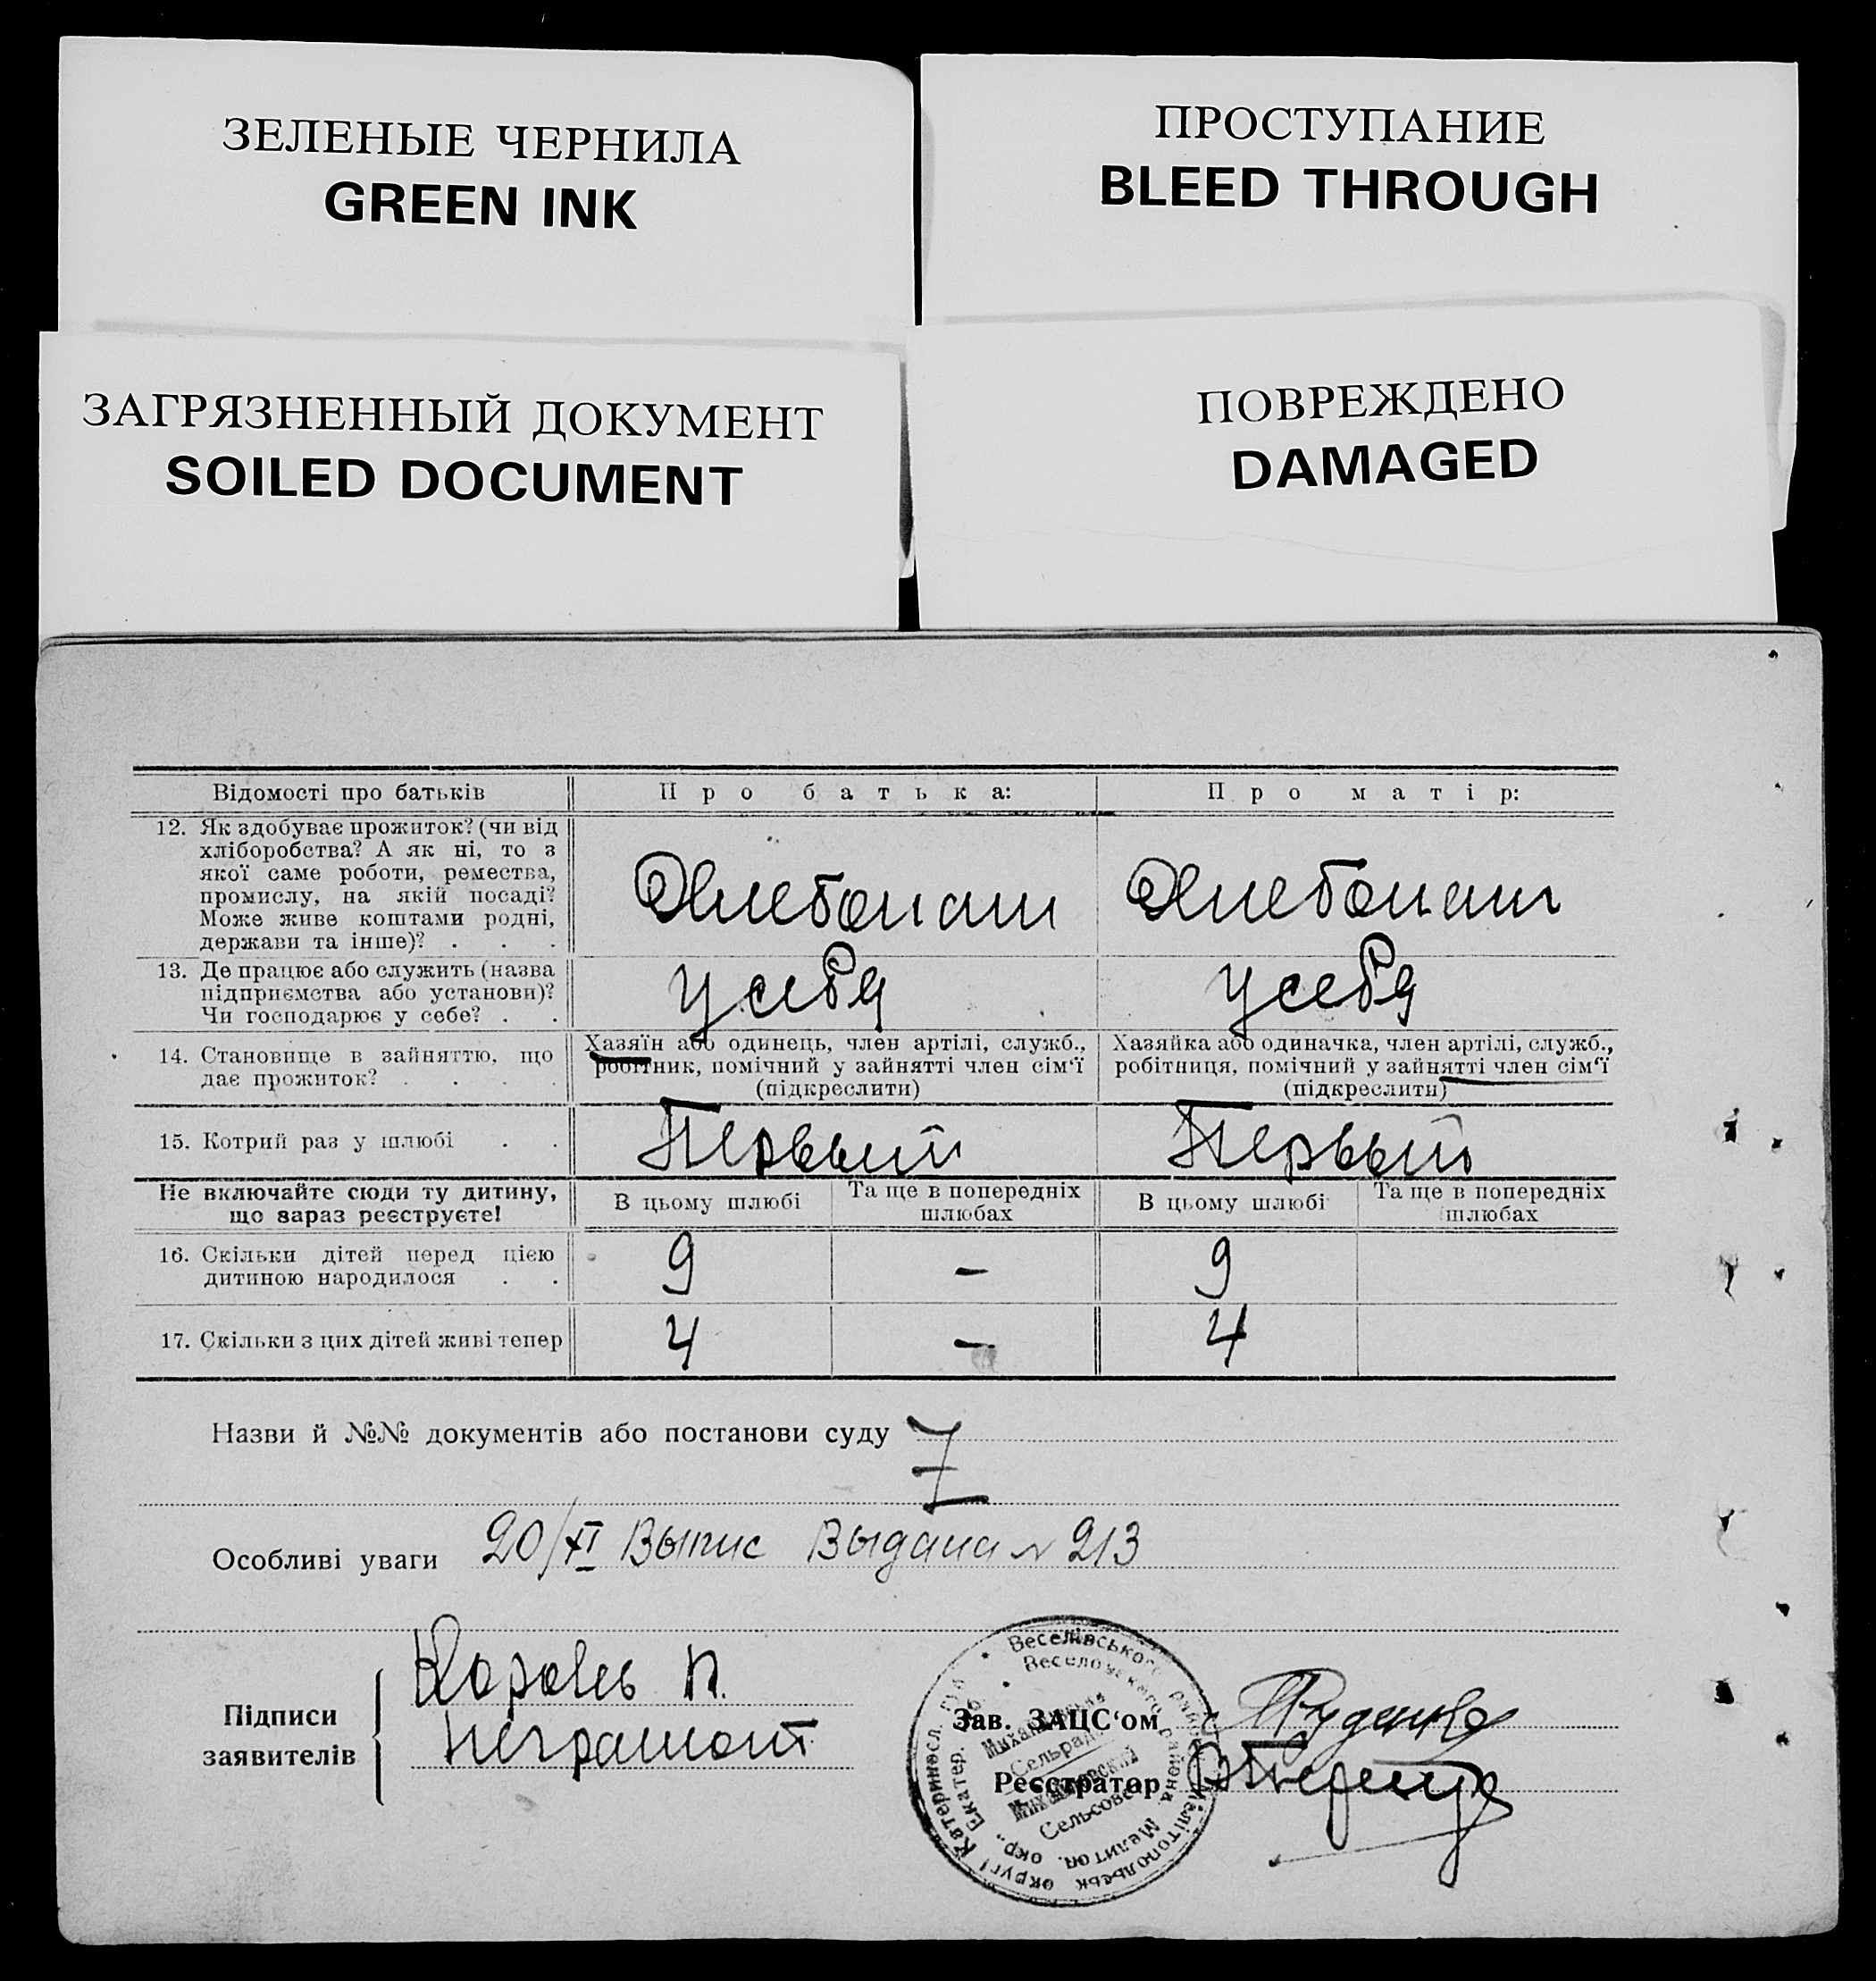 ЗЕЛЕНЫЕ ЧЕРНИЛА
GREEN INK
ПРОСТУПАНИЕ
BLEED THROUGH
ЗАГРЯЗНЕННЫЙ ДОКУМЕНТ
SOILED DOCUMENT
ПОВРЕЖДЕНО
DAMAGED
Відомості про батьків
Про батька:
Про матір:
12. Як здобуває прожиток? (чи від
хліборобства? А як ні, то з
якої саме роботи, ремества,
промислу, на якій посаді?
Може живе коштами родні,
держави та інше)? . . .
Хлебопаш
Хлебопаш
13. Де працює або служить (назва
підприємства або установи)?
Чи господарює у себе? . .
У себя
У себя
14. Становище в зайняттю, що
дає прожиток? . . . .
Хазяїн або одинець, член артілі, служб.,
робітник, помічний у зайнятті член сім‘ї
(підкреслити)
Хазяйка або одиначка, член артілі, служб.,
робітниця, помічний у зайнятті член сім‘ї
(підкреслити)
15. Котрий раз у шлюбі . .
Первый
Первый
Не включайте сюди ту дитину,
що зараз реєструєте!
В цьому шлюбі
Та ще в попередніх
шлюбах
В цьому шлюбі
Та ще в попередніх
шлюбах
16. Скільки дітей перед цією
дитиною народилося . .
9
–
9
17. Скільки з цих дітей живі тепер
4
–
4
Назви й №№ документів або постанови суду
Особливі уваги 20/XI Выпис Выдана № 213
Підписи
заявителів
Король П.
Неграмот
Зав. ЗАЦС‘ом Руденко
Реєстратор
Веселівського району Мелітопольськ округ! Катериносл. губ.
Веселовского района Мелитоп. окр. Екатер.
Сельрада
Михайловский
Сельсовет